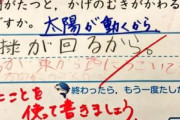 がたつと、かげのむきがかわる
ですか。太陽が動くから。
球が回るから。
終わったら、もう一度たし
たことを使って書きましょう。